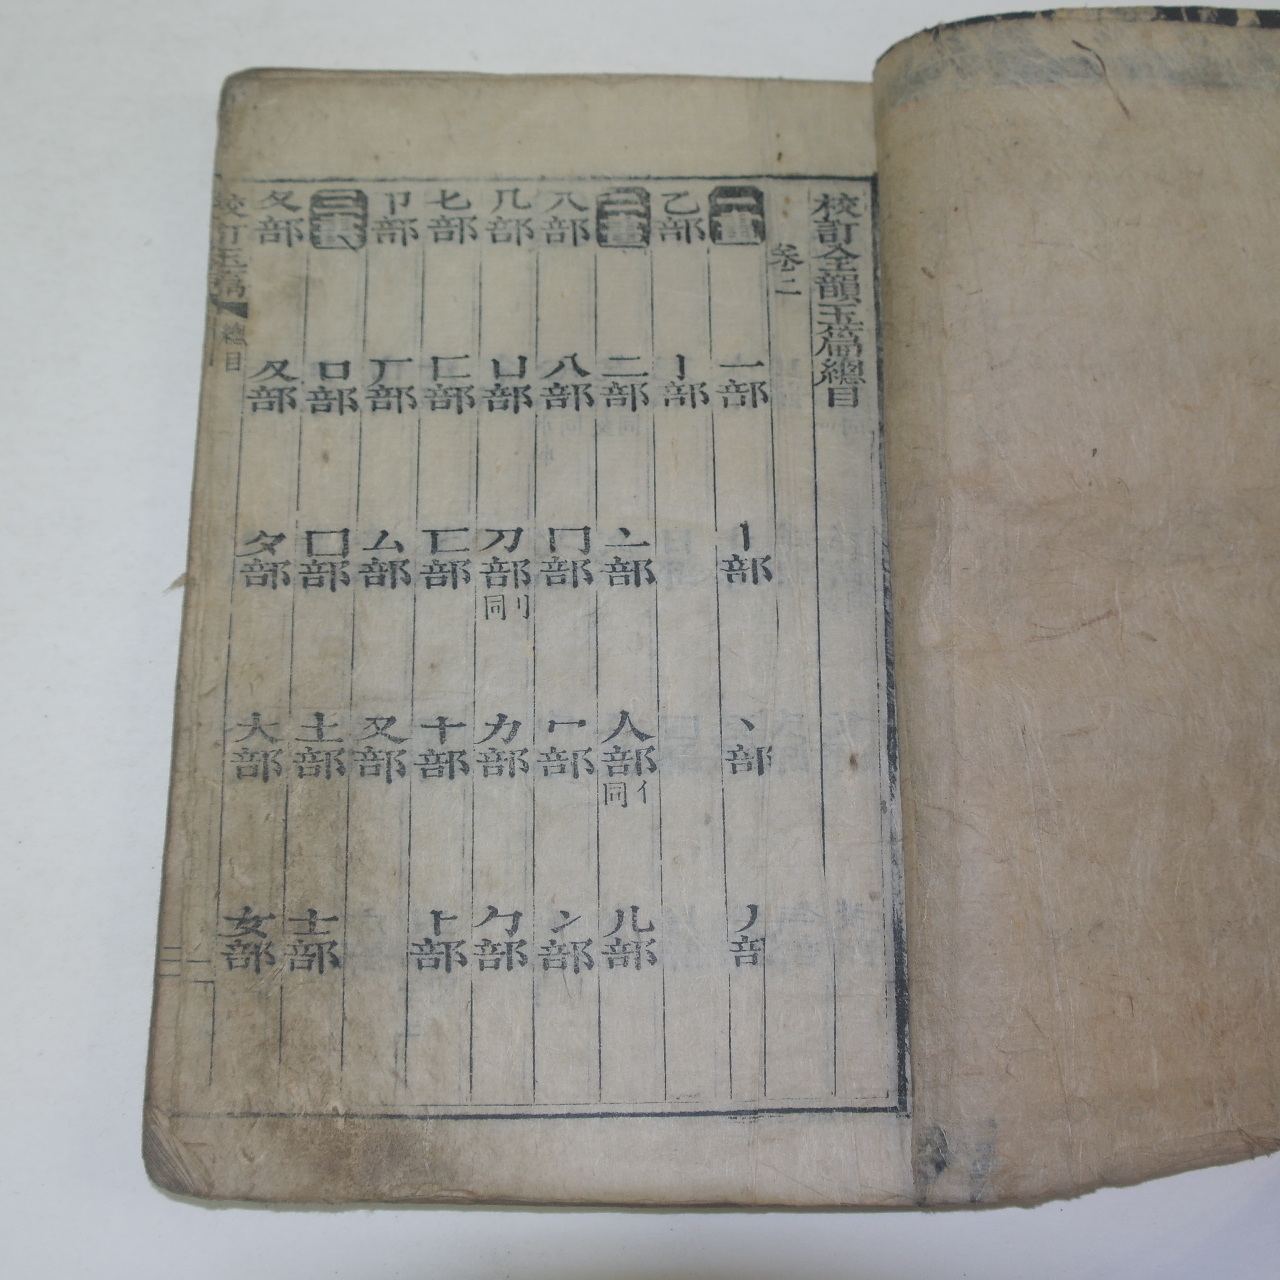 校訂全韻玉篇總目
卷二
一畫 一部 丨部 丶部 丿部
乙部 亅部
二畫 二部 亠部 人部 亻同 儿部
入部 八部 冂部 冖部 冫部
几部 凵部 刀部 刂同 力部 勹部
匕部 匚部 匸部 十部 卜部
卩部 厂部 厶部 又部
三畫 口部 囗部 土部 士部
夂部 夊部 夕部 大部 女部
校訂玉篇 總目 一